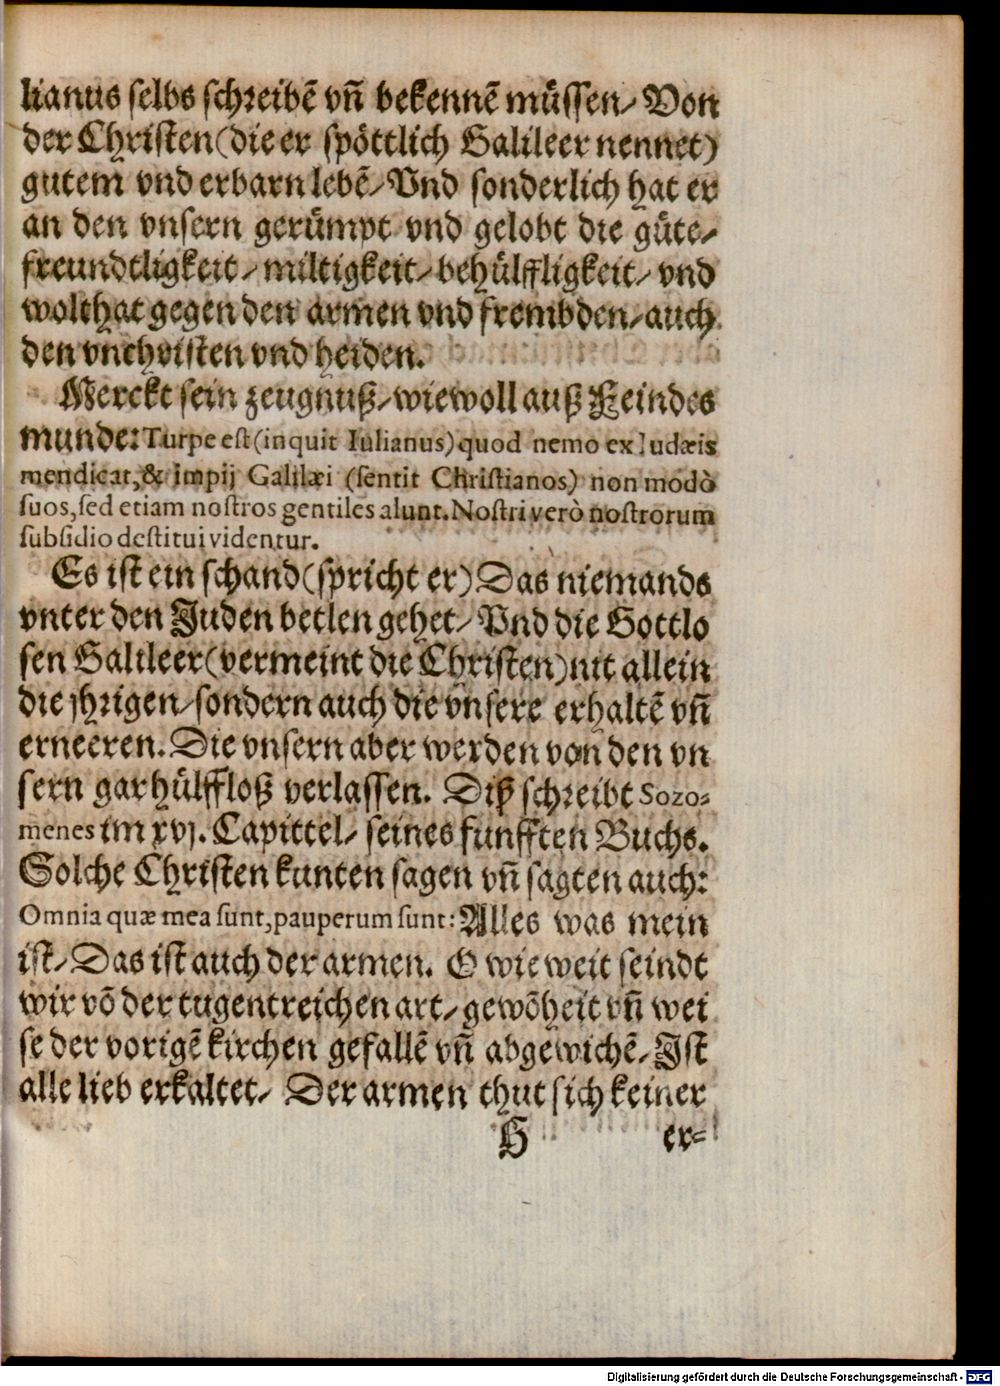 lianus selbs schreibē vñ bekennē müssen/ Von
der Christen (die er spöttlich Galileer nennet)
gutem vnd erbarn lebē/ Vnd sonderlich hat er
an den vnsern gerümpt vnd gelobt die güte/
freundtligkeit/ miltigkeit/ behülffligkeit/ vnd
wolthat gegen den armen vnd frembden/ auch
den vnchristen vnd heiden.
Merckt sein zeugnuß/ wiewoll auß Feindes
munde: Turpe est (inquit Iulianus) quod nemo ex Iudæis
mendicat, & impij Galilæi (sentit Christianos) non modò
suos, sed etiam nostros gentiles alunt. Nostri verò nostrorum
subsidio destitui videntur.
Es ist ein schand (spricht er) Das niemands
vnter den Juden betlen gehet/ Vnd die Gottlo
sen Galileer (vermeint die Christen) nit allein
die jhrigen/ sondern auch die vnsere erhaltē vñ
erneeren. Die vnsern aber werden von den vn
sern gar hülffloß verlassen. Diß schreibt Sozo-
menes im xvj. Capittel/ seines funfften Buchs.
Solche Christen kunten sagen vñ sagten auch:
Omnia quæ mea sunt, pauperum sunt: Alles was mein
ist/ Das ist auch der armen. O wie weit seindt
wir vō der tugentreichen art/ gewōheit vñ wei
se der vorigē kirchen gefallē vñ abgewichē/ Ist
alle lieb erkaltet/ Der armen thut sich keiner
H er-
Digitalisierung gefördert durch die Deutsche Forschungsgemeinschaft - DFG